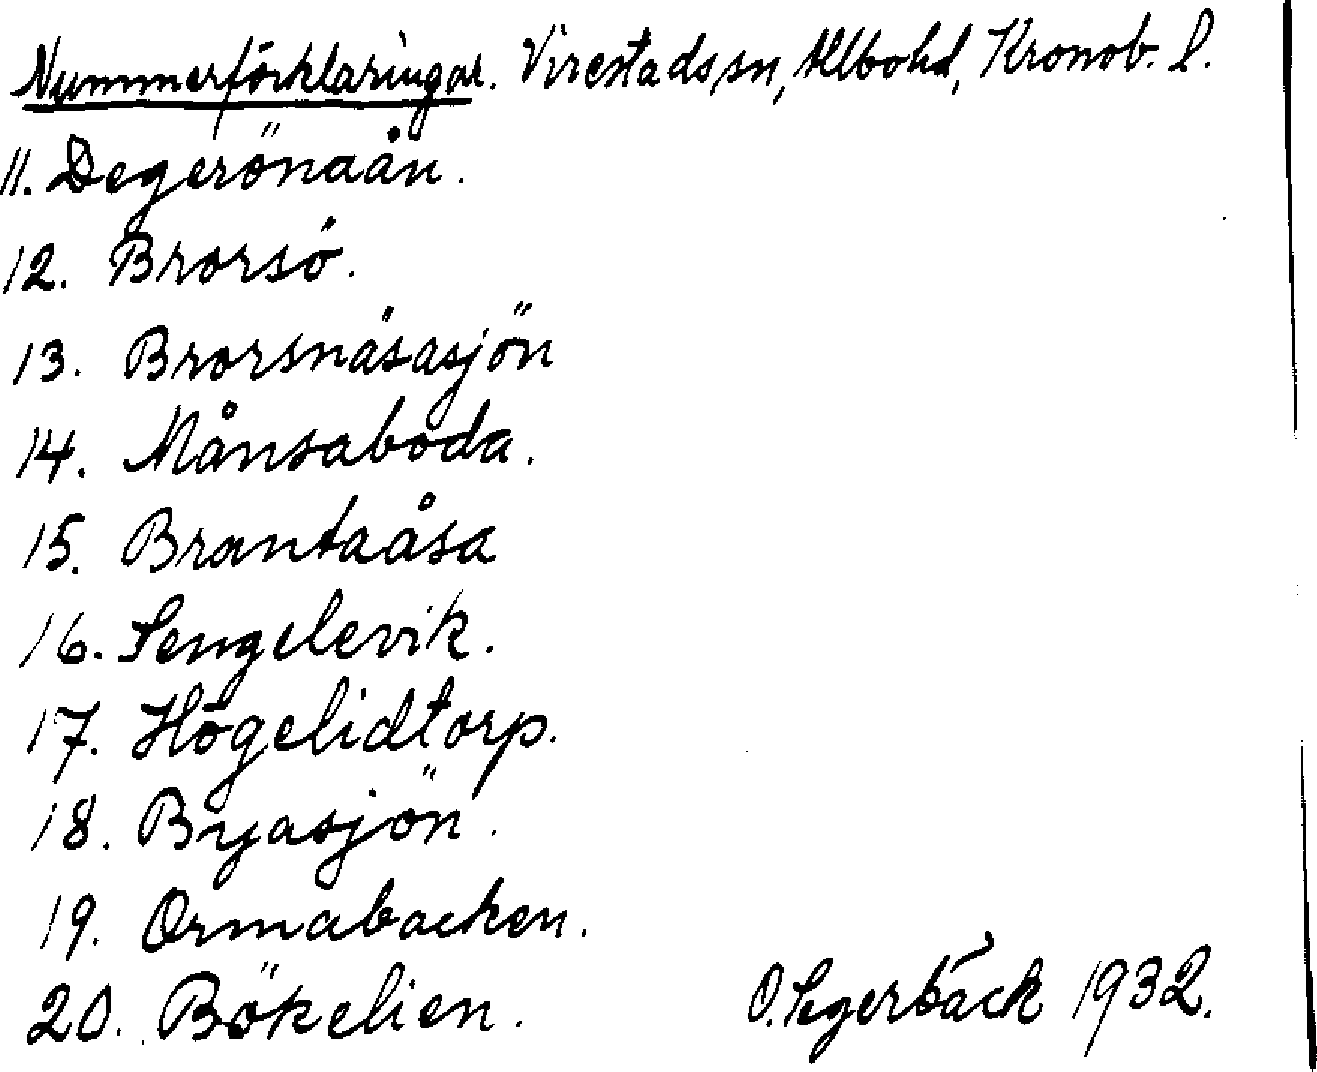 Nummerförklaringar. Virestads sn, Allbohd, Kronob. l.
11. Degerönaån.
12. Brorsö.
13. Brorsnäsasjön
14. Månsaboda.
15. Brantaåsa
16. Sengelevik.
17. Högelidtorp.
18. Byasjön.
19. Ormabacken.
20. Bökelien.
O. Segerbäck 1932.